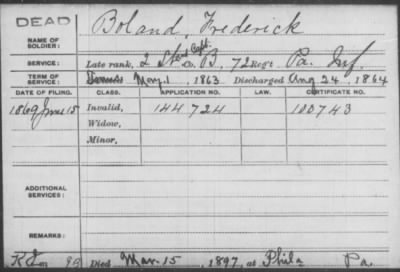 DEAD
Boland, Frederick
NAME OF SOLDIER:
Capt.
SERVICE: Late rank, 2 Co. B, 72 Regt. Pa. Inf.
TERM OF SERVICE: May 1, 1863 Discharged Aug 24, 1864
DATE OF FILING. CLASS. APPLICATION NO. LAW. CERTIFICATE NO.
1869 June 15 Invalid, 144724 100743
Widow,
Minor,
ADDITIONAL SERVICES:
REMARKS:
Died Mar. 15, 1897, at Phila Pa.